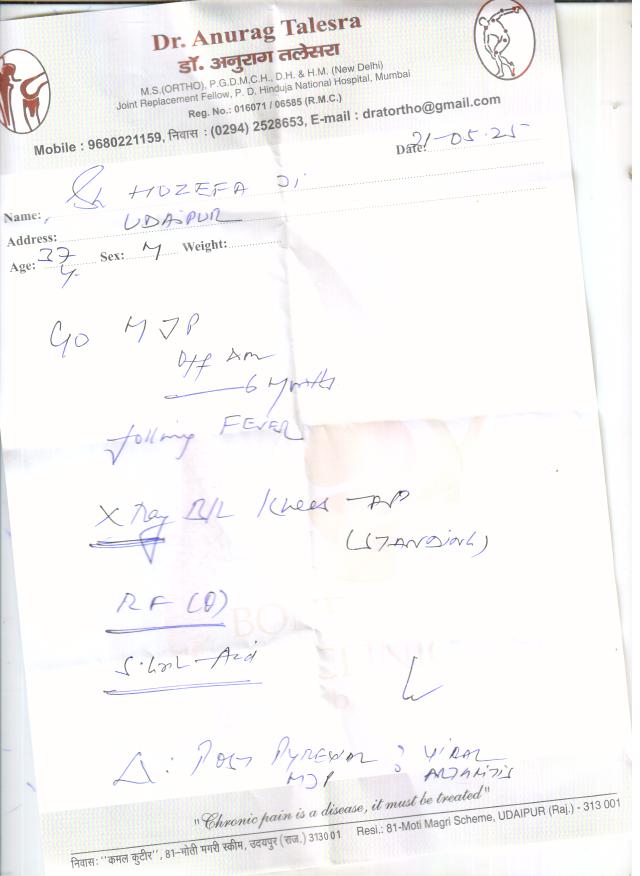 Dr. Anurag Talesra
डॉ. अनुराग तलेसरा
M.S.(ORTHO), P.G.D.M.C.H., D.H. & H.M. (New Delhi)
Joint Replacement Fellow, P. D. Hinduja National Hospital, Mumbai
Reg. No.: 016071 / 06585 (R.M.C.)
Mobile : 9680221159, निवास : (0294) 2528653, E-mail : dratortho@gmail.com
Date: 21-05-25
Name: Sh HUZEFA Ji
Address: UDAIPUR
Age: 37 y. Sex: M Weight:
C/O MJP
Off An
6 Months
following FEVER
X Ray B/L Knees - AP
(STANDING)
RF (Q)
S. Uric - Acid
Δ : Post Pyrexial ? VIRAL
MJP ARTHRITIS
"Chronic pain is a disease, it must be treated"
निवास: "कमल कुटीर", 81-मोती मगरी स्कीम, उदयपुर (राज.) 313001 Resi.: 81-Moti Magri Scheme, UDAIPUR (Raj.) - 313 001